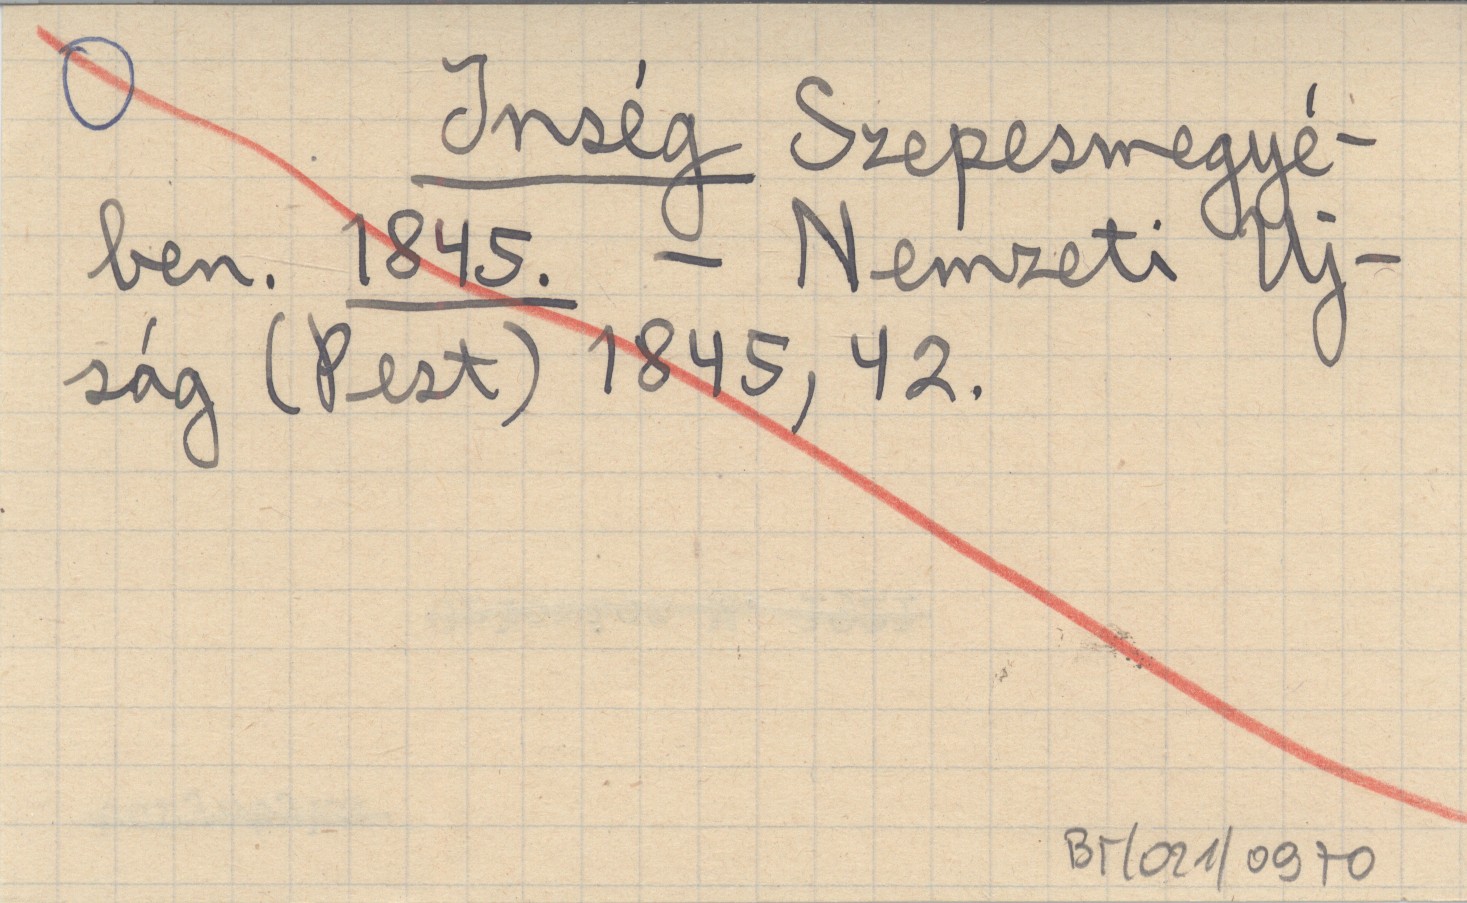 Inség Szepesmegyé-
ben. 1845. – Nemzeti Uj-
ság (Pest) 1845, 42.
BT/021/0970